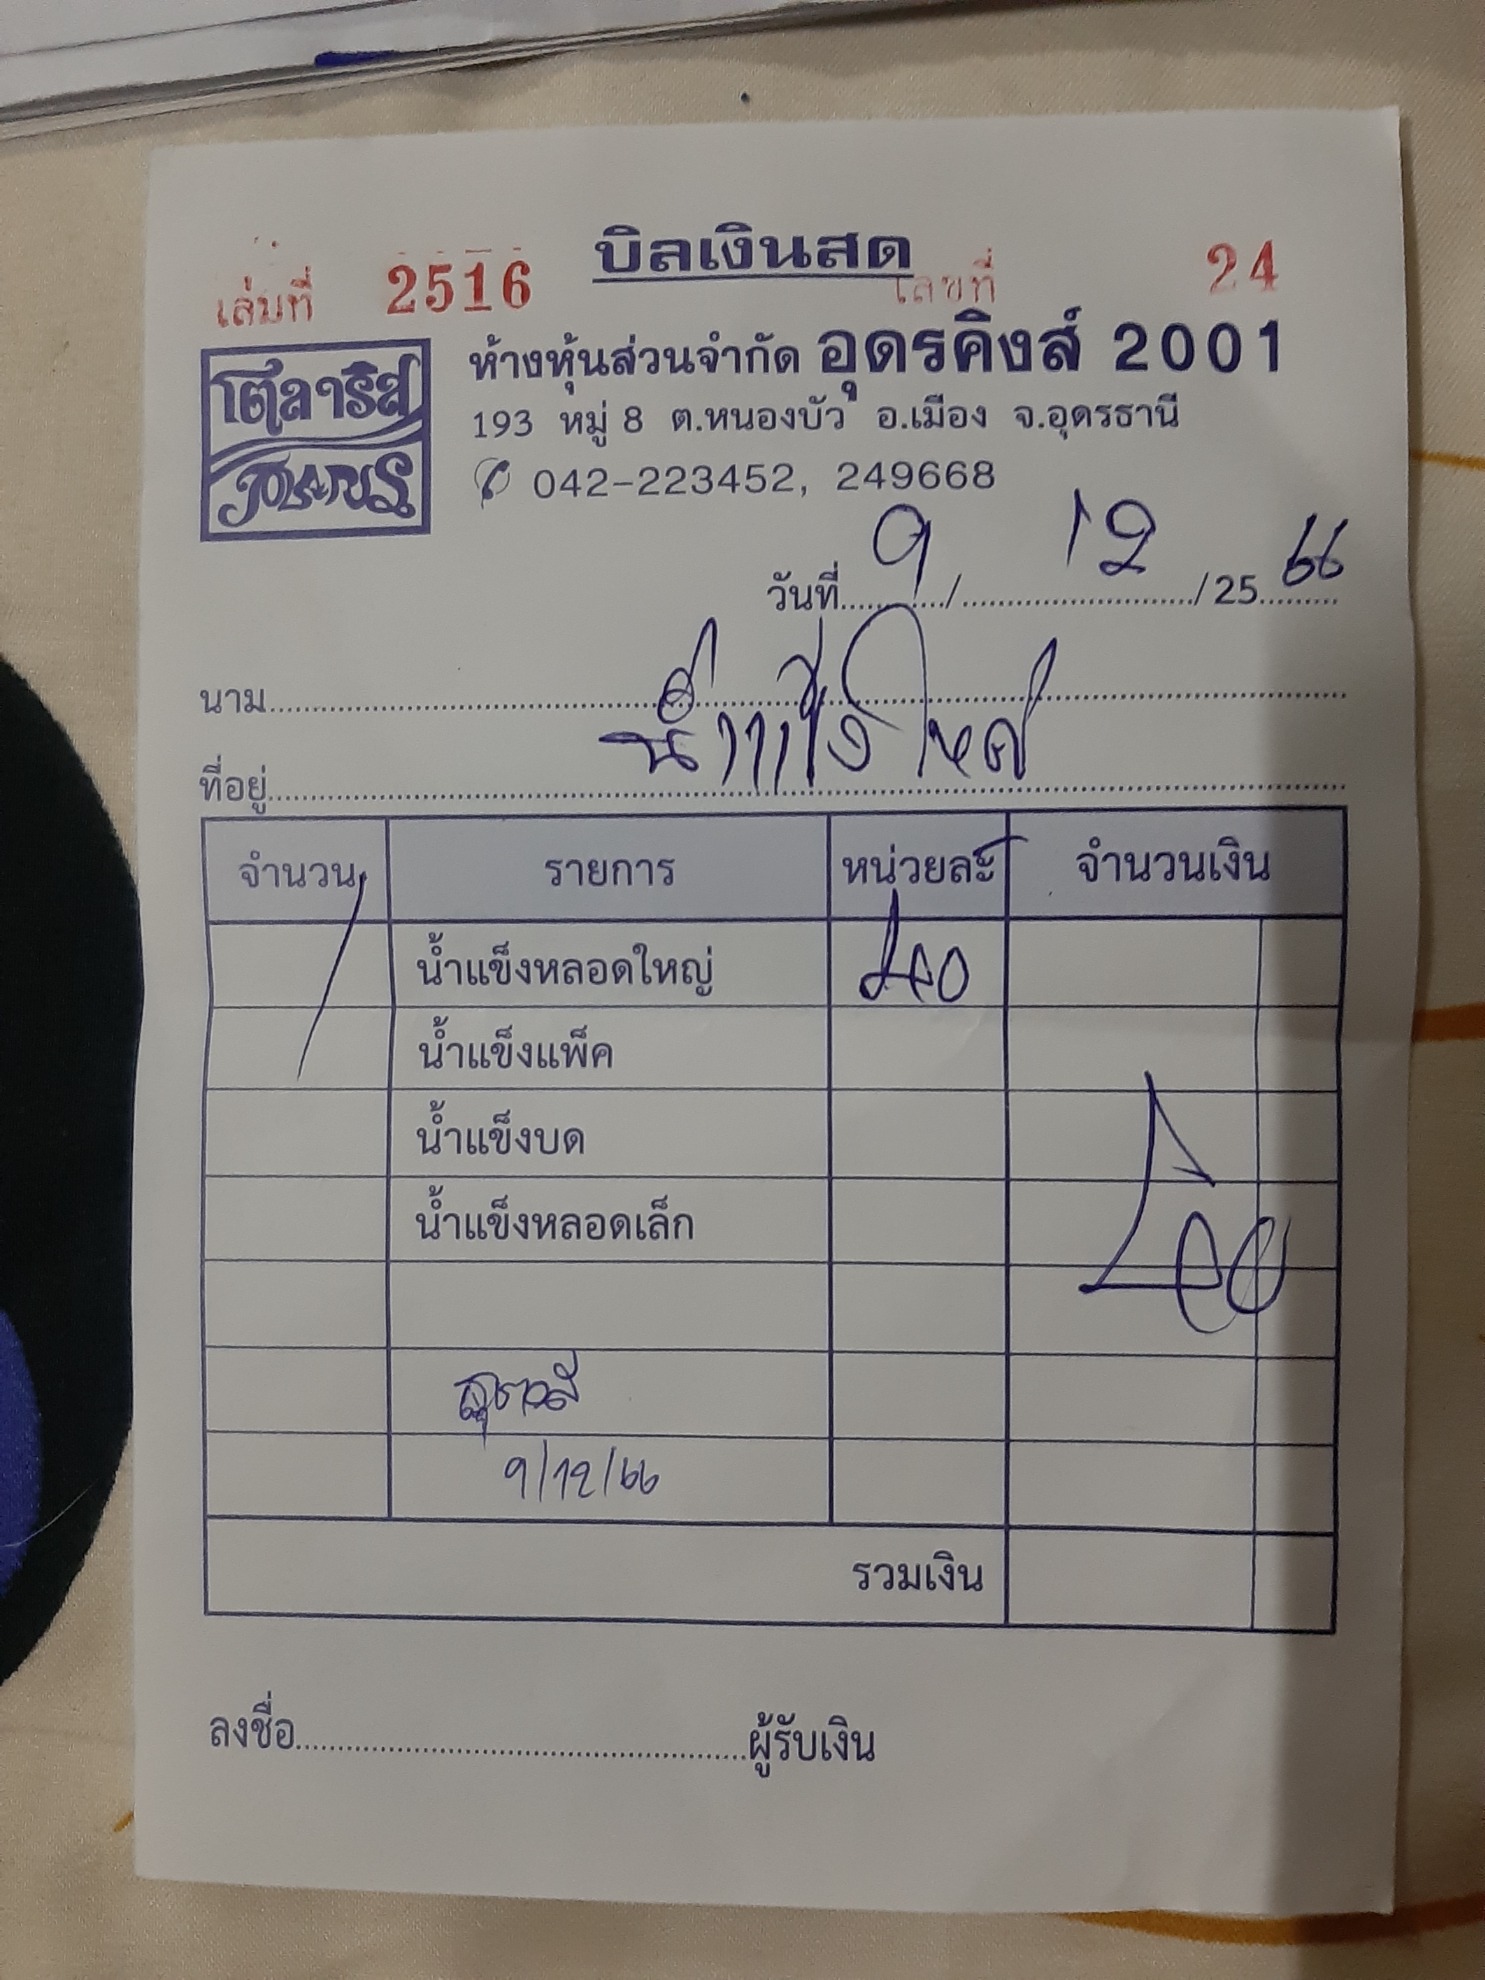 บิลเงินสด
เล่มที่ 2516 เลขที่ 24
โตลาริส
ห้างหุ้นส่วนจำกัด อุดรคิงส์ 2001
193 หมู่ 8 ต.หนองบัว อ.เมือง จ.อุดรธานี
042-223452, 249668
วันที่ 9 / 12 / 25 66
นาม
น้ำแข็งใหญ่
ที่อยู่
จำนวน รายการ หน่วยละ จำนวนเงิน
1 น้ำแข็งหลอดใหญ่ 40
น้ำแข็งแพ็ค
น้ำแข็งบด
น้ำแข็งหลอดเล็ก
9/12/66
รวมเงิน
ลงชื่อ ผู้รับเงิน